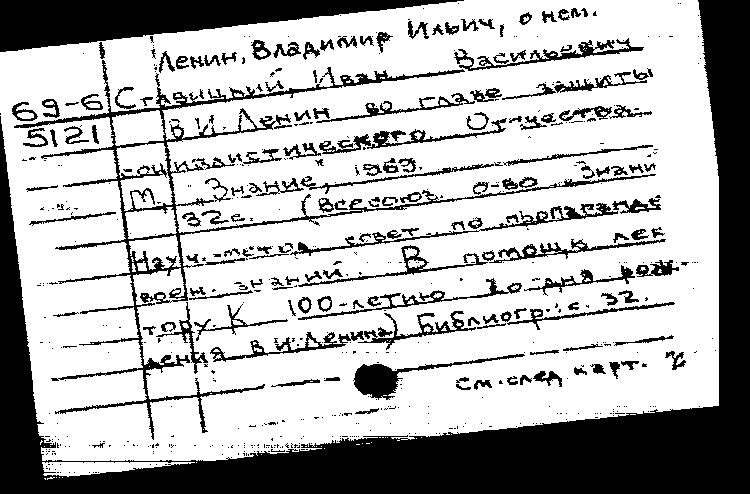 Ленин, Владимир Ильич, о нем.
69-6
5121
Ставицкий, Иван Васильевич
В.И. Ленин во главе защиты
социалистического Отечества.
М., "Знание", 1969.
32 с. (Всесоюз. о-во "Знани
Науч.-метод. совет по пропаганде
воен. знаний. В помощь лек
тору. К 100-летию со дня рож-
дения В.И. Ленина) Библиогр.: с. 32.
см. след карт.